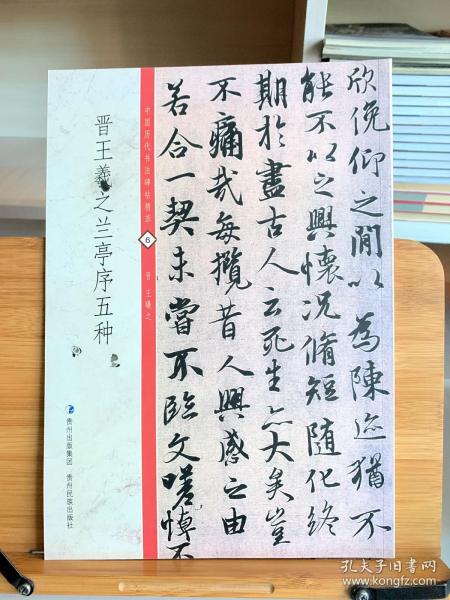 晋王羲之兰亭序五种
贵州出版集团
贵州民族出版社
中国历代书法碑帖精萃
6
晋 王羲之
欣俛仰之閒以為陳迹猶不
能不以之興懷况脩短随化終
期於盡古人云死生亦大矣豈
不痛哉每攬昔人興感之由
若合一契未嘗不臨文嗟悼不
孔夫子旧书网
www.kongfz.com